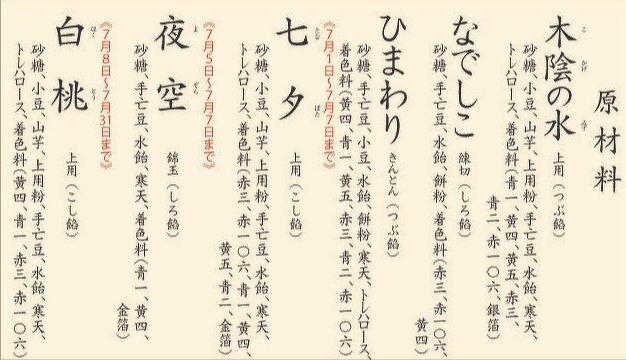 原材料
木陰の水 上用（つぶ餡）
こ かげ みず
砂糖、小豆、山芋、上用粉、手亡豆、水飴、寒天、
トレハロース、着色料（青一、黄四、黄五、赤三、
青二、赤一〇六、銀箔）
なでしこ 練切（しろ餡）
砂糖、手亡豆、水飴、餅粉、着色料（赤三、赤一〇六、
黄四）
ひまわり きんとん（つぶ餡）
砂糖、手亡豆、小豆、水飴、餅粉、寒天、トレハロース、
着色料（黄四、青一、黄五、赤三、青二、赤一〇六）
《7月1日〜7月7日まで》
七夕 上用（こし餡）
たな ばた
砂糖、小豆、山芋、上用粉、手亡豆、水飴、寒天、
トレハロース、着色料（赤三、赤一〇六、青一、黄四、
黄五、青二、金箔）
《7月5日〜7月7日まで》
夜空 錦玉（しろ餡）
よ ぞら
砂糖、手亡豆、水飴、寒天、着色料（青一、黄四、
金箔）
《7月8日〜7月31日まで》
白桃 上用（こし餡）
はく とう
砂糖、小豆、山芋、上用粉、手亡豆、水飴、寒天、
トレハロース、着色料（黄四、青一、赤三、赤一〇六）